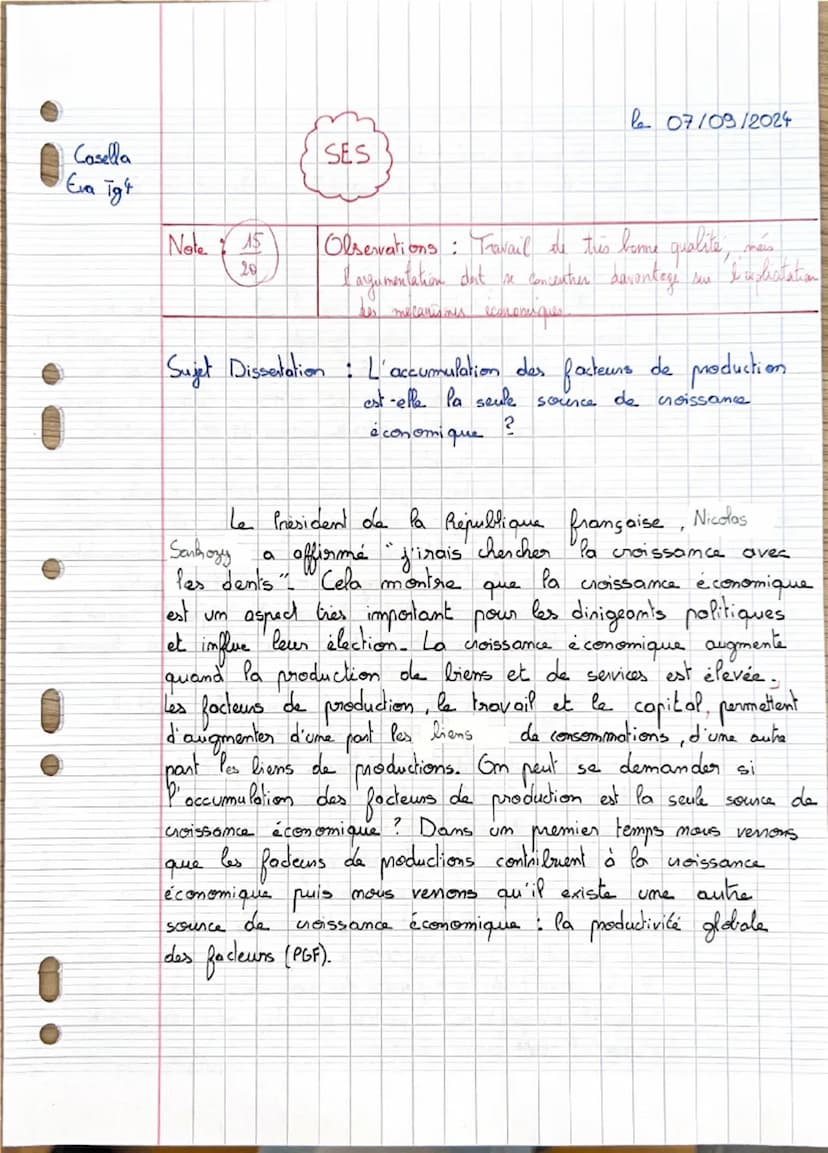 le 07/09/2024
SES
Casella
Eva Tg4
Note : 15/20
Observations : Travail de très bonne qualité, mais
l'argumentation doit se concentrer davantage sur l'explicitation
des mécanismes économiques.
Sujet Dissertation : L'accumulation des facteurs de production
est-elle la seule source de croissance
économique ?
Le Président de la République française, Nicolas
Sarkozy a affirmé "j'irais chercher la croissance avec
les dents". Cela montre que la croissance économique
est un aspect très important pour les dirigeants politiques
et influe leur élection. La croissance économique augmente
quand la production de biens et de services est élevée.
Les facteurs de production, le travail et le capital, permettent
d'augmenter d'une part les biens de consommations, d'une autre
part les biens de productions. On peut se demander si
l'accumulation des facteurs de production est la seule source de
croissance économique ? Dans un premier temps nous verrons
que les facteurs de productions contribuent à la croissance
économique puis nous verrons qu'il existe une autre
source de croissance économique : la productivité globale
des facteurs (PGF).